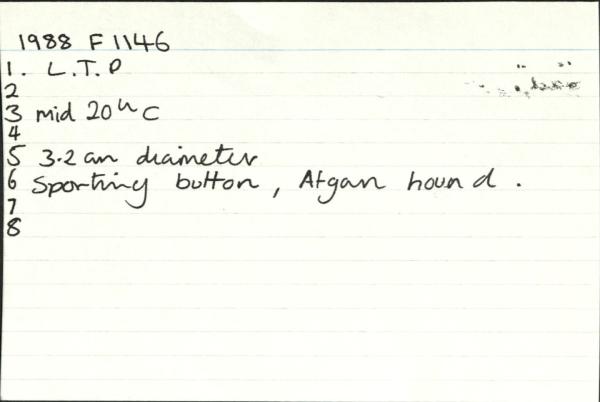 1988 F 1146
1. L.T.P
2
3 mid 20th C
4
5 3.2 cm diameter
6 Sporting button, Afgan hound.
7
8